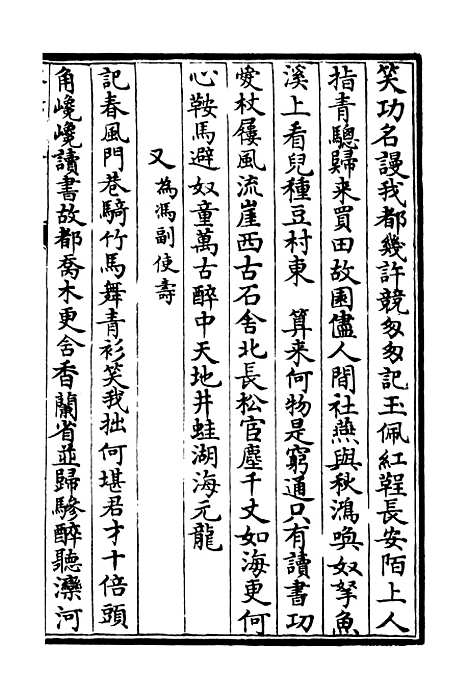 笑功名謾我都幾許競匆匆記玉佩紅鞓長安陌上人
指青驄歸来買田故園儘人間社燕與秋鴻喚奴拏魚
溪上看兒種豆村東　算来何物是窮通只有讀書功
愛杖屨風流崖西古石舍北長松官塵千丈如海更何
心鞍馬避奴童萬古醉中天地井蛙湖海元龍
又為馮副使壽
記春風門巷騎竹馬舞青衫笑我拙何堪君才十倍頭
角嶘嶘讀書故都喬木更含香蘭省並歸驂醉聽灤河